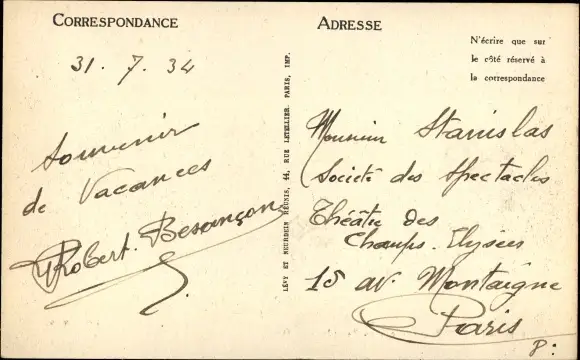 CORRESPONDANCE
31. 7. 34
Souvenir
de Vacances
Robert. Besançon
LÉVY ET NEURDEIN RÉUNIS, 44, RUE LETELLIER. PARIS, IMP.
ADRESSE
N'écrire que sur
le côté réservé à
la correspondance
Monsieur Stanislas
Société des Spectacles
Théâtre des
Champs. Elysées
15 av. Montaigne
Paris
8: